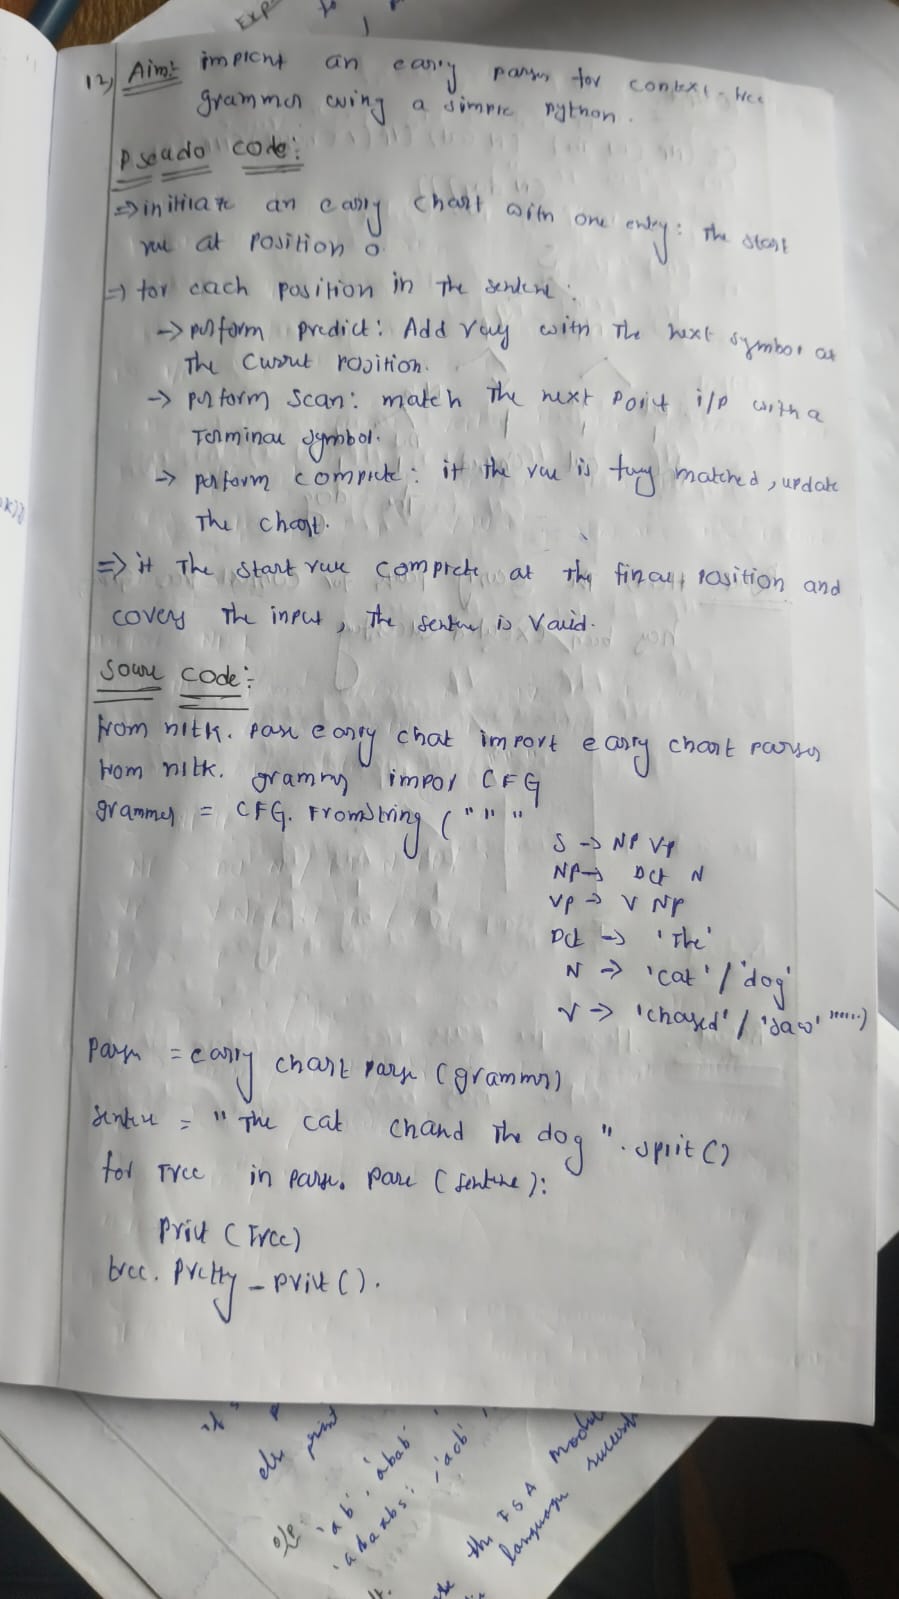 12) Aim:- implent an early parser for context-free
grammer using a simple python.
Pseudo code:
=> initilate an early chart with one entry: The start
rule at position 0.
=> for each position in the sentene:
-> perform predict: Add rules with The next symbol at
The current position.
-> perform scan: match The next point i/p with a
Terminal symbol.
-> perform complete: if the rule is fully matched, update
The chart.
=> if The start rule complete at the final position and
covers The input, The sentence is valid.
Soure code:-
from nltk. parse early chat import early chart parser
from nltk. grammer impor CFG
grammer = CFG. Fromstring ( " " "
S -> NP VP
NP -> Det N
VP -> V NP
Det -> 'The'
N -> 'cat' / 'dog'
V -> 'chased' / 'saw' """)
Parser = early chart parse (grammer)
sentence = " The cat chased The dog ". split ()
for Tree in parse. parse (sentence):
Print (Tree)
tree. Pretty_print ().
els print
o/p:
'ab', 'abab'
the FSA
language